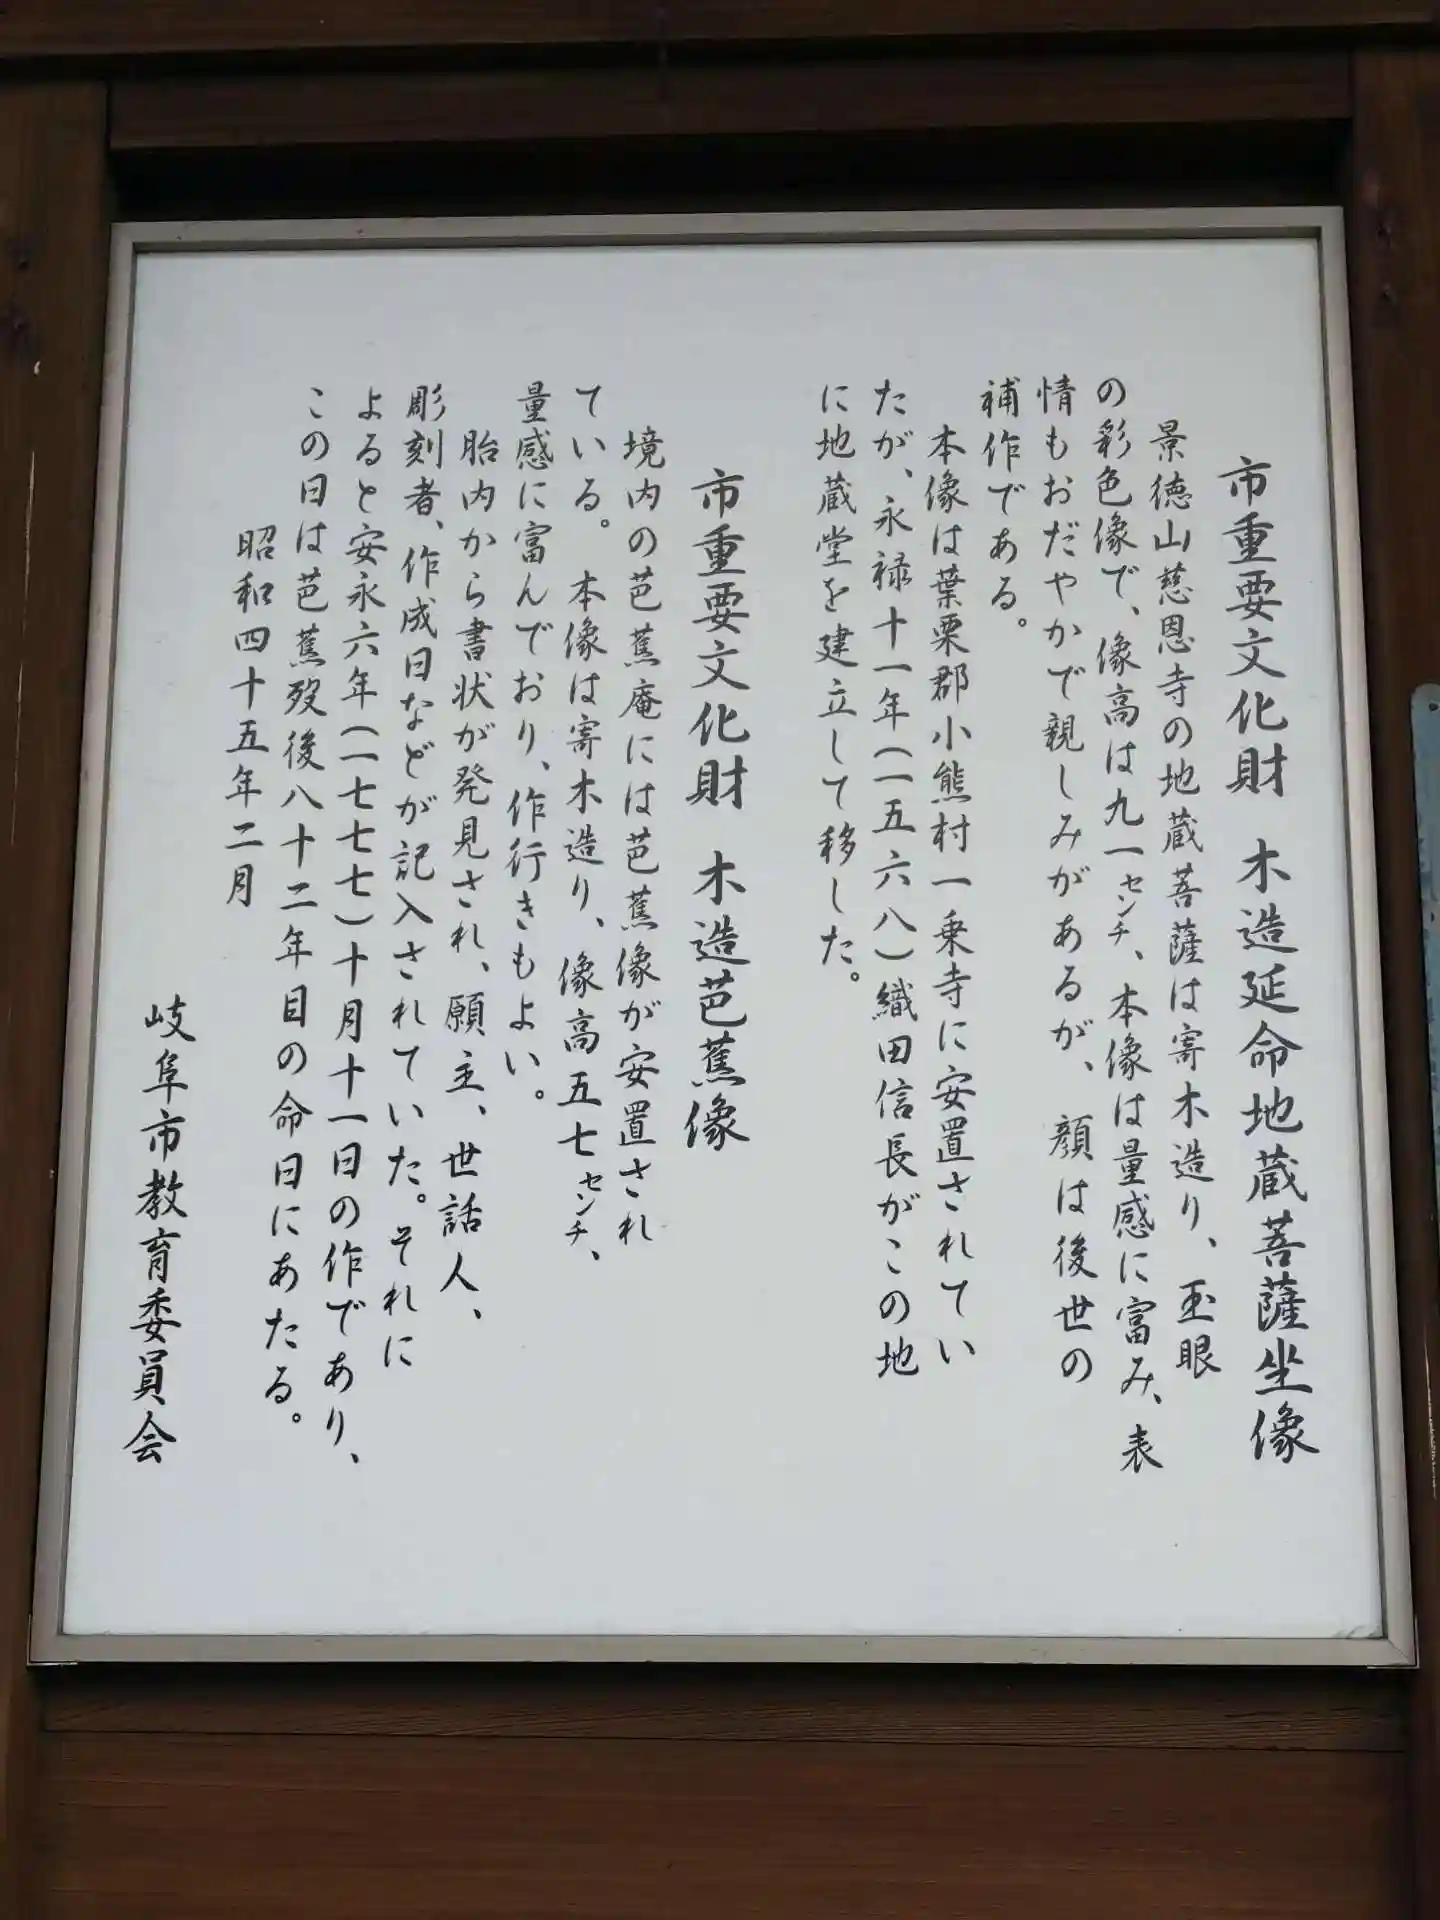 市重要文化財　木造延命地蔵菩薩坐像
景徳山慈恩寺の地蔵菩薩は寄木造り、玉眼
の彩色像で、像高は九一センチ、本像は量感に富み、表
情もおだやかで親しみがあるが、顔は後世の
補作である。
本像は葉栗郡小熊村一乗寺に安置されてい
たが、永禄十一年（一五六八）織田信長がこの地
に地蔵堂を建立して移した。
市重要文化財　木造芭蕉像
境内の芭蕉庵には芭蕉像が安置され
ている。本像は寄木造り、像高五七センチ、
量感に富んでおり、作行きもよい。
胎内から書状が発見され、願主、世話人、
彫刻者、作成日などが記入されていた。それに
よると安永六年（一七七七）十月十一日の作であり、
この日は芭蕉歿後八十二年目の命日にあたる。
昭和四十五年二月
岐阜市教育委員会